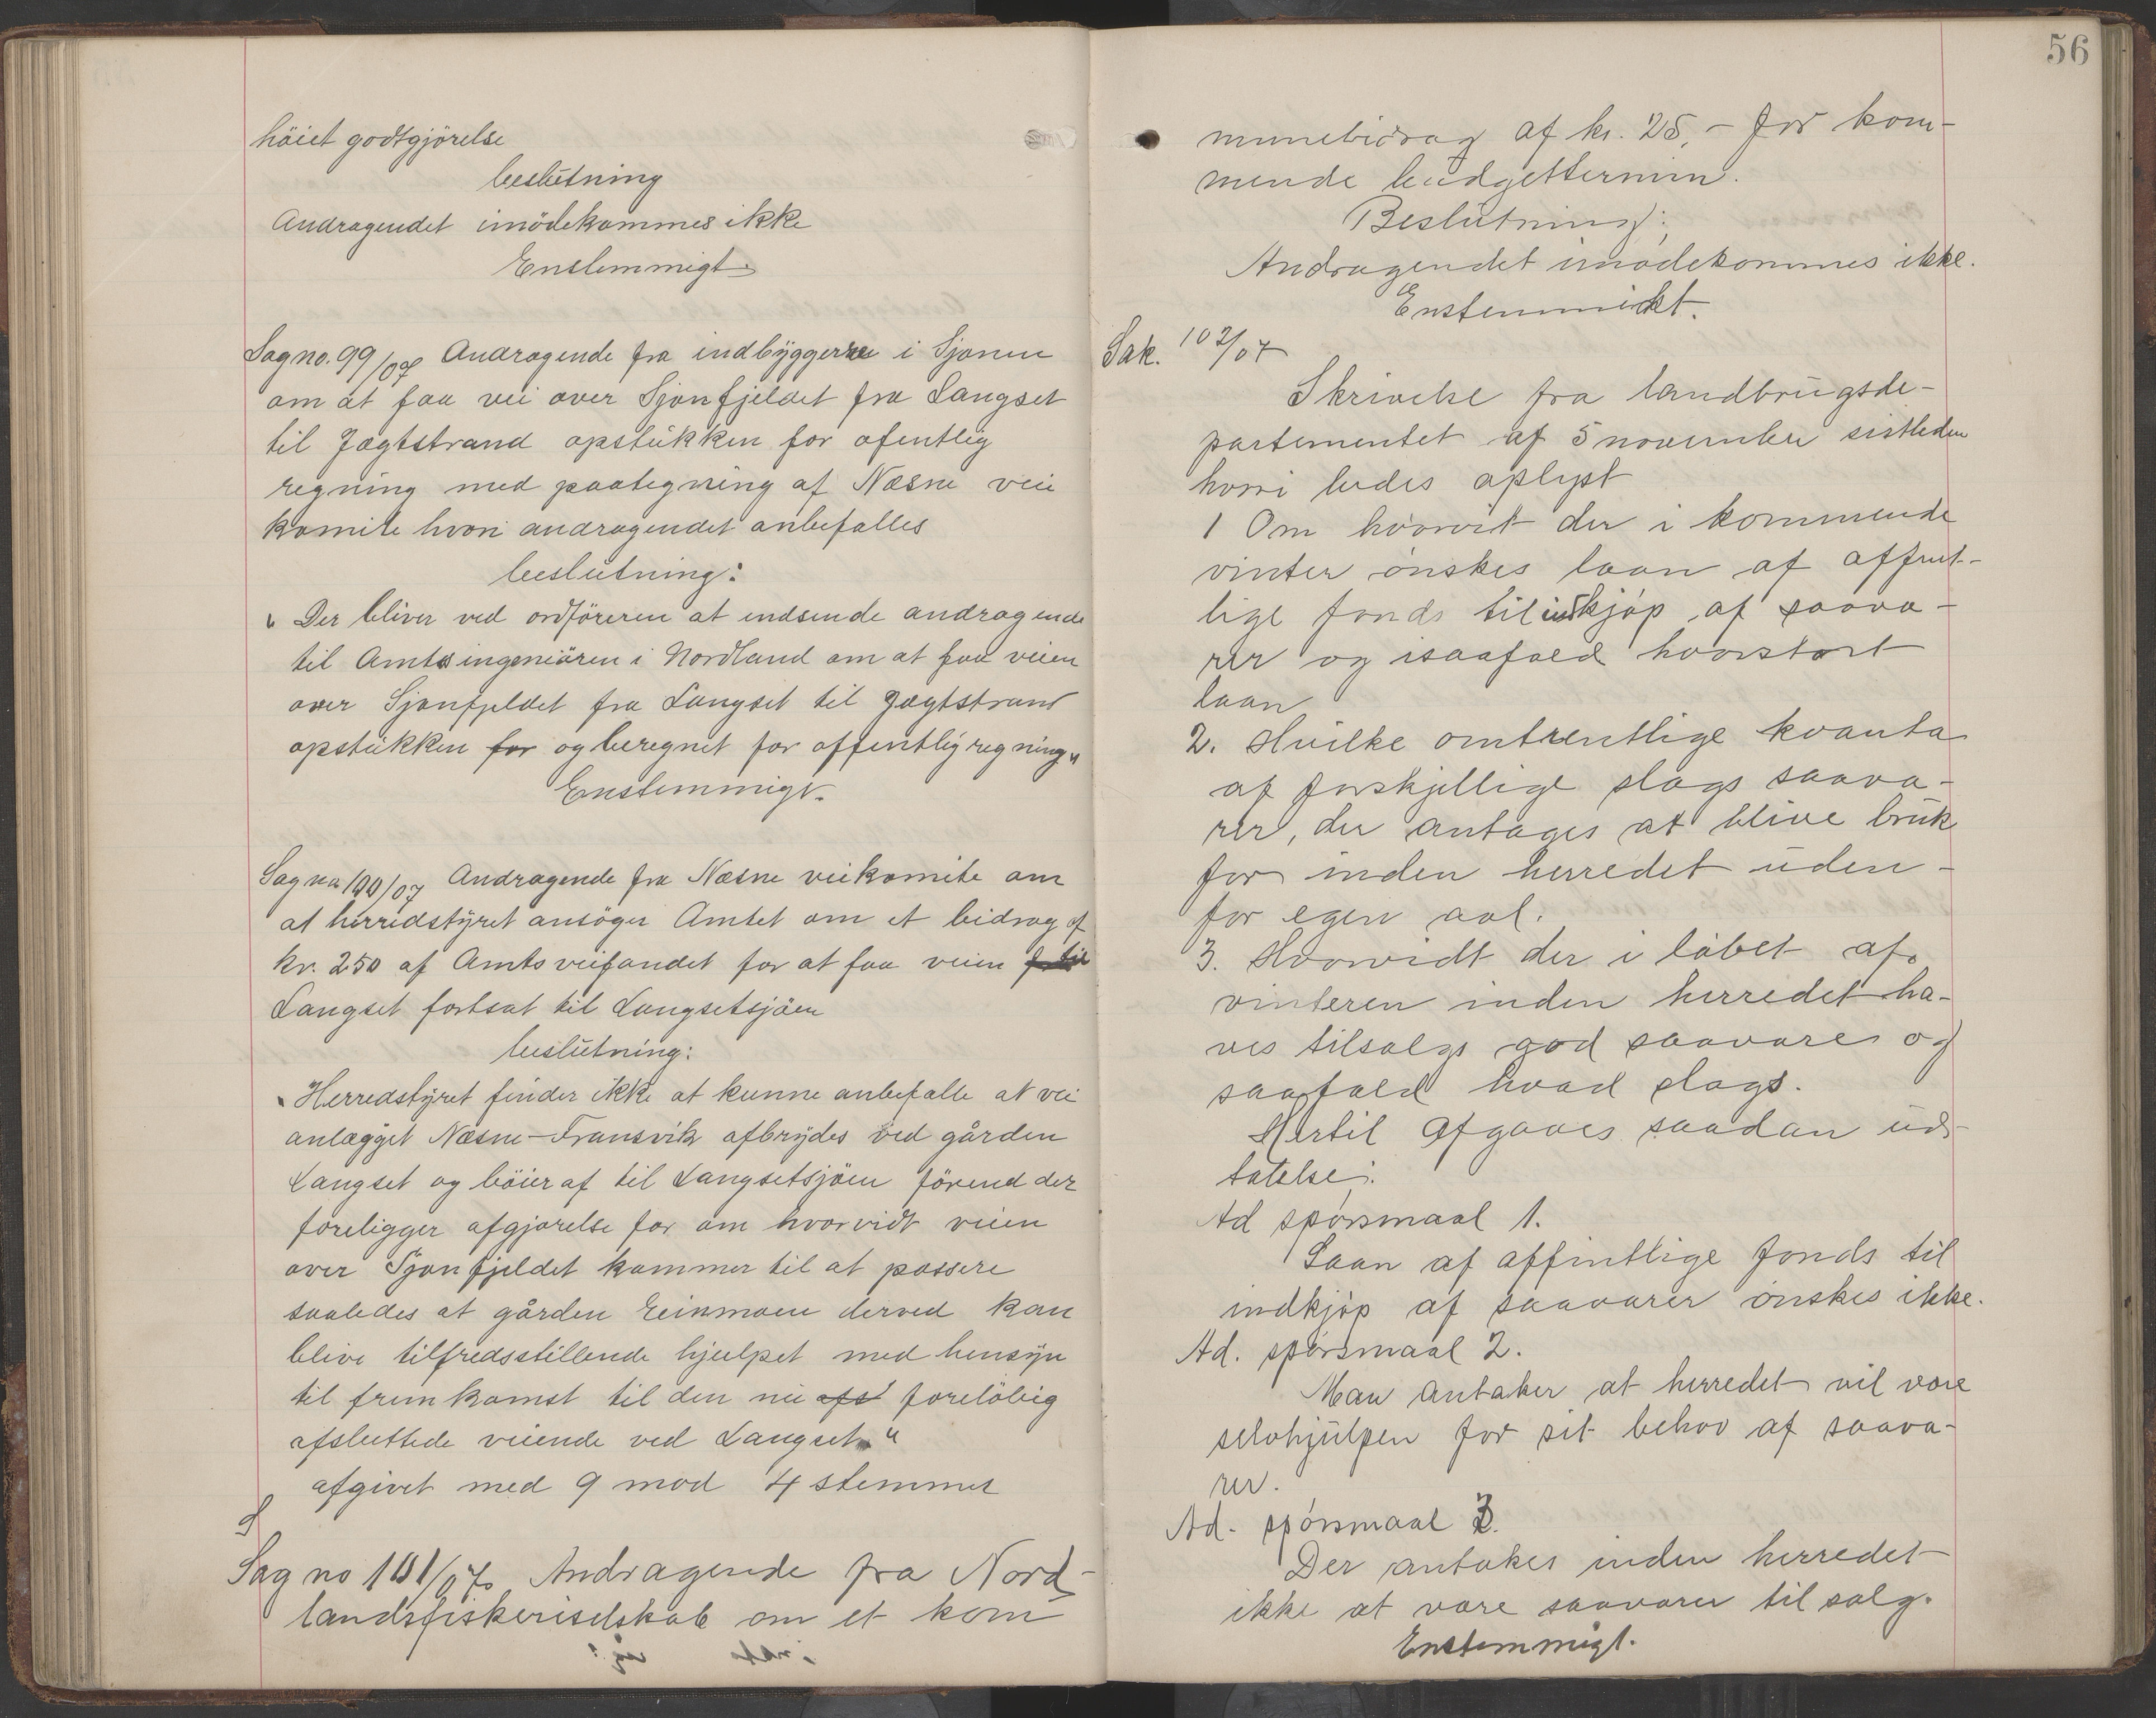 höiet godtgjörelse
beslutning
Andragendet imödekommes ikke
Enstemmigt.
Sag no. 99/07 Andragende fra indbyggerne i Sjonen
om at faa vei over Sjonfjeldet fra Langset
til Jægtstrand opstukken for ofentlig
regning med paategning af Næsne veie
komite hvori andragendet anbefalles
beslutning:
"Der bliver ved ordföreren at indsende andragende
til Amtsingeniören i Nordland om at faa veien
over Sjonfjeldet fra Langset til Jægtstrand
opstukken for og beregnet for offentlig regning"
Enstemmigt.
Sag no 100/07 Andragende fra Næsne veikomite om
at herredstyret ansöger Amtet om et bidrag af
kr. 250 af Amtsveifondet for at faa veien til
Langset fortsat til Langsetsjöen
beslutning:
"Herredstyret finder ikke at kunne anbefalle at vei
anlægget Næsne-Fransvik afbrydes ved gården
Langset og böier af til Langsetsjöen förend der
foreligger afgjörelse for om hvorvidt veien
over Sjonfjeldet kommer til at passere
saaledes at gården Reinmoen derved kan
blive tilfredsstillende hjulpet med hensyn
til fremkomst til den nu afs forelöbig
afsluttede veiende ved Langset"
afgivet med 9 mod 4 stemmer
S
Sag no 101/07. Andragende fra Nord-
landsfiskeriselskab om et kom-
56
munebidrag af kr. 25,- for kom-
mende budgettermin.
Beslutning:
Andragendet imødekommes ikke.
Enstemmikt.
Sak. 102/07
Skrivelse fra landbrugsde-
partementet af 5 november sistleden
hvori bedes oplyst
1 Om hvorvit der i kommende
vinter ønskes laan af offent-
lige fonds til indkjøp af saava-
rer og isaafald hvorstort
laan
2. Hvilke omtrentlige kvanta
af forskjellige slags saava-
rer, der antages at blive bruk
for inden herredet uden-
for egen avl.
3. Hvorvidt der i løbet af
vinteren inden herredet ha-
ves tilsalgs god saavare og
saafald hvad slags.
Hertil afgaves saadan ud-
tatelse:
Ad spørsmaal 1.
Laan af offintlige fonds til
indkjøp af saavarer ønskes ikke.
Ad. spørsmaal 2.
Man antaker at herredet vil være
selvhjulpen for sit behov af saava-
rer.
Ad. spørsmaal 3.
Der antakes inden herredet
ikke at være saavarer til salg.
Enstemmigt.